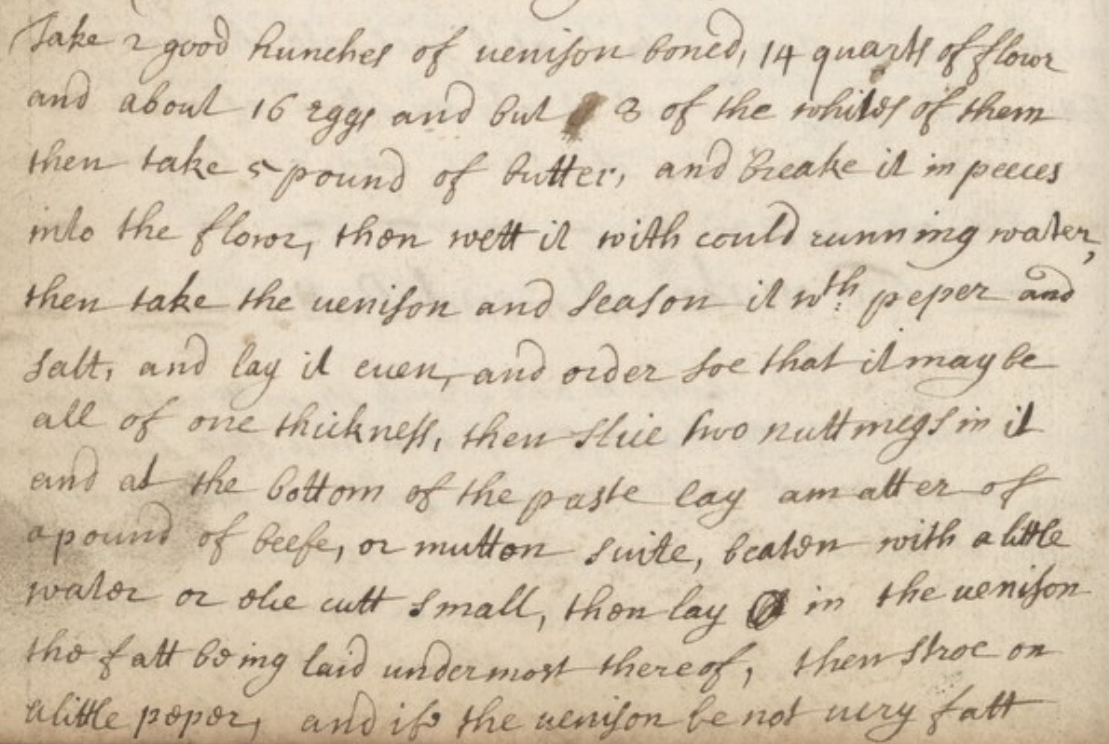 Take 2 good hunches of venison boned, 14 quarts of flowr
and about 16 eggs and but 8 of the whites of them
then take 5 pound of butter, and breake it in peeces
into the flowr, then wett it with could running water,
then take the venison and season it wth peper and
salt, and lay it even, and order soe that it may be
all of one thickness, then slice two nuttmegs in it
and at the bottom of the paste lay a matter of
a pound of beefe, or mutton suite, beaten with a little
water or else cutt small, then lay in the venison
the fatt being laid undermost thereof, then stroe on
a little peper, and if the venison be not very fatt